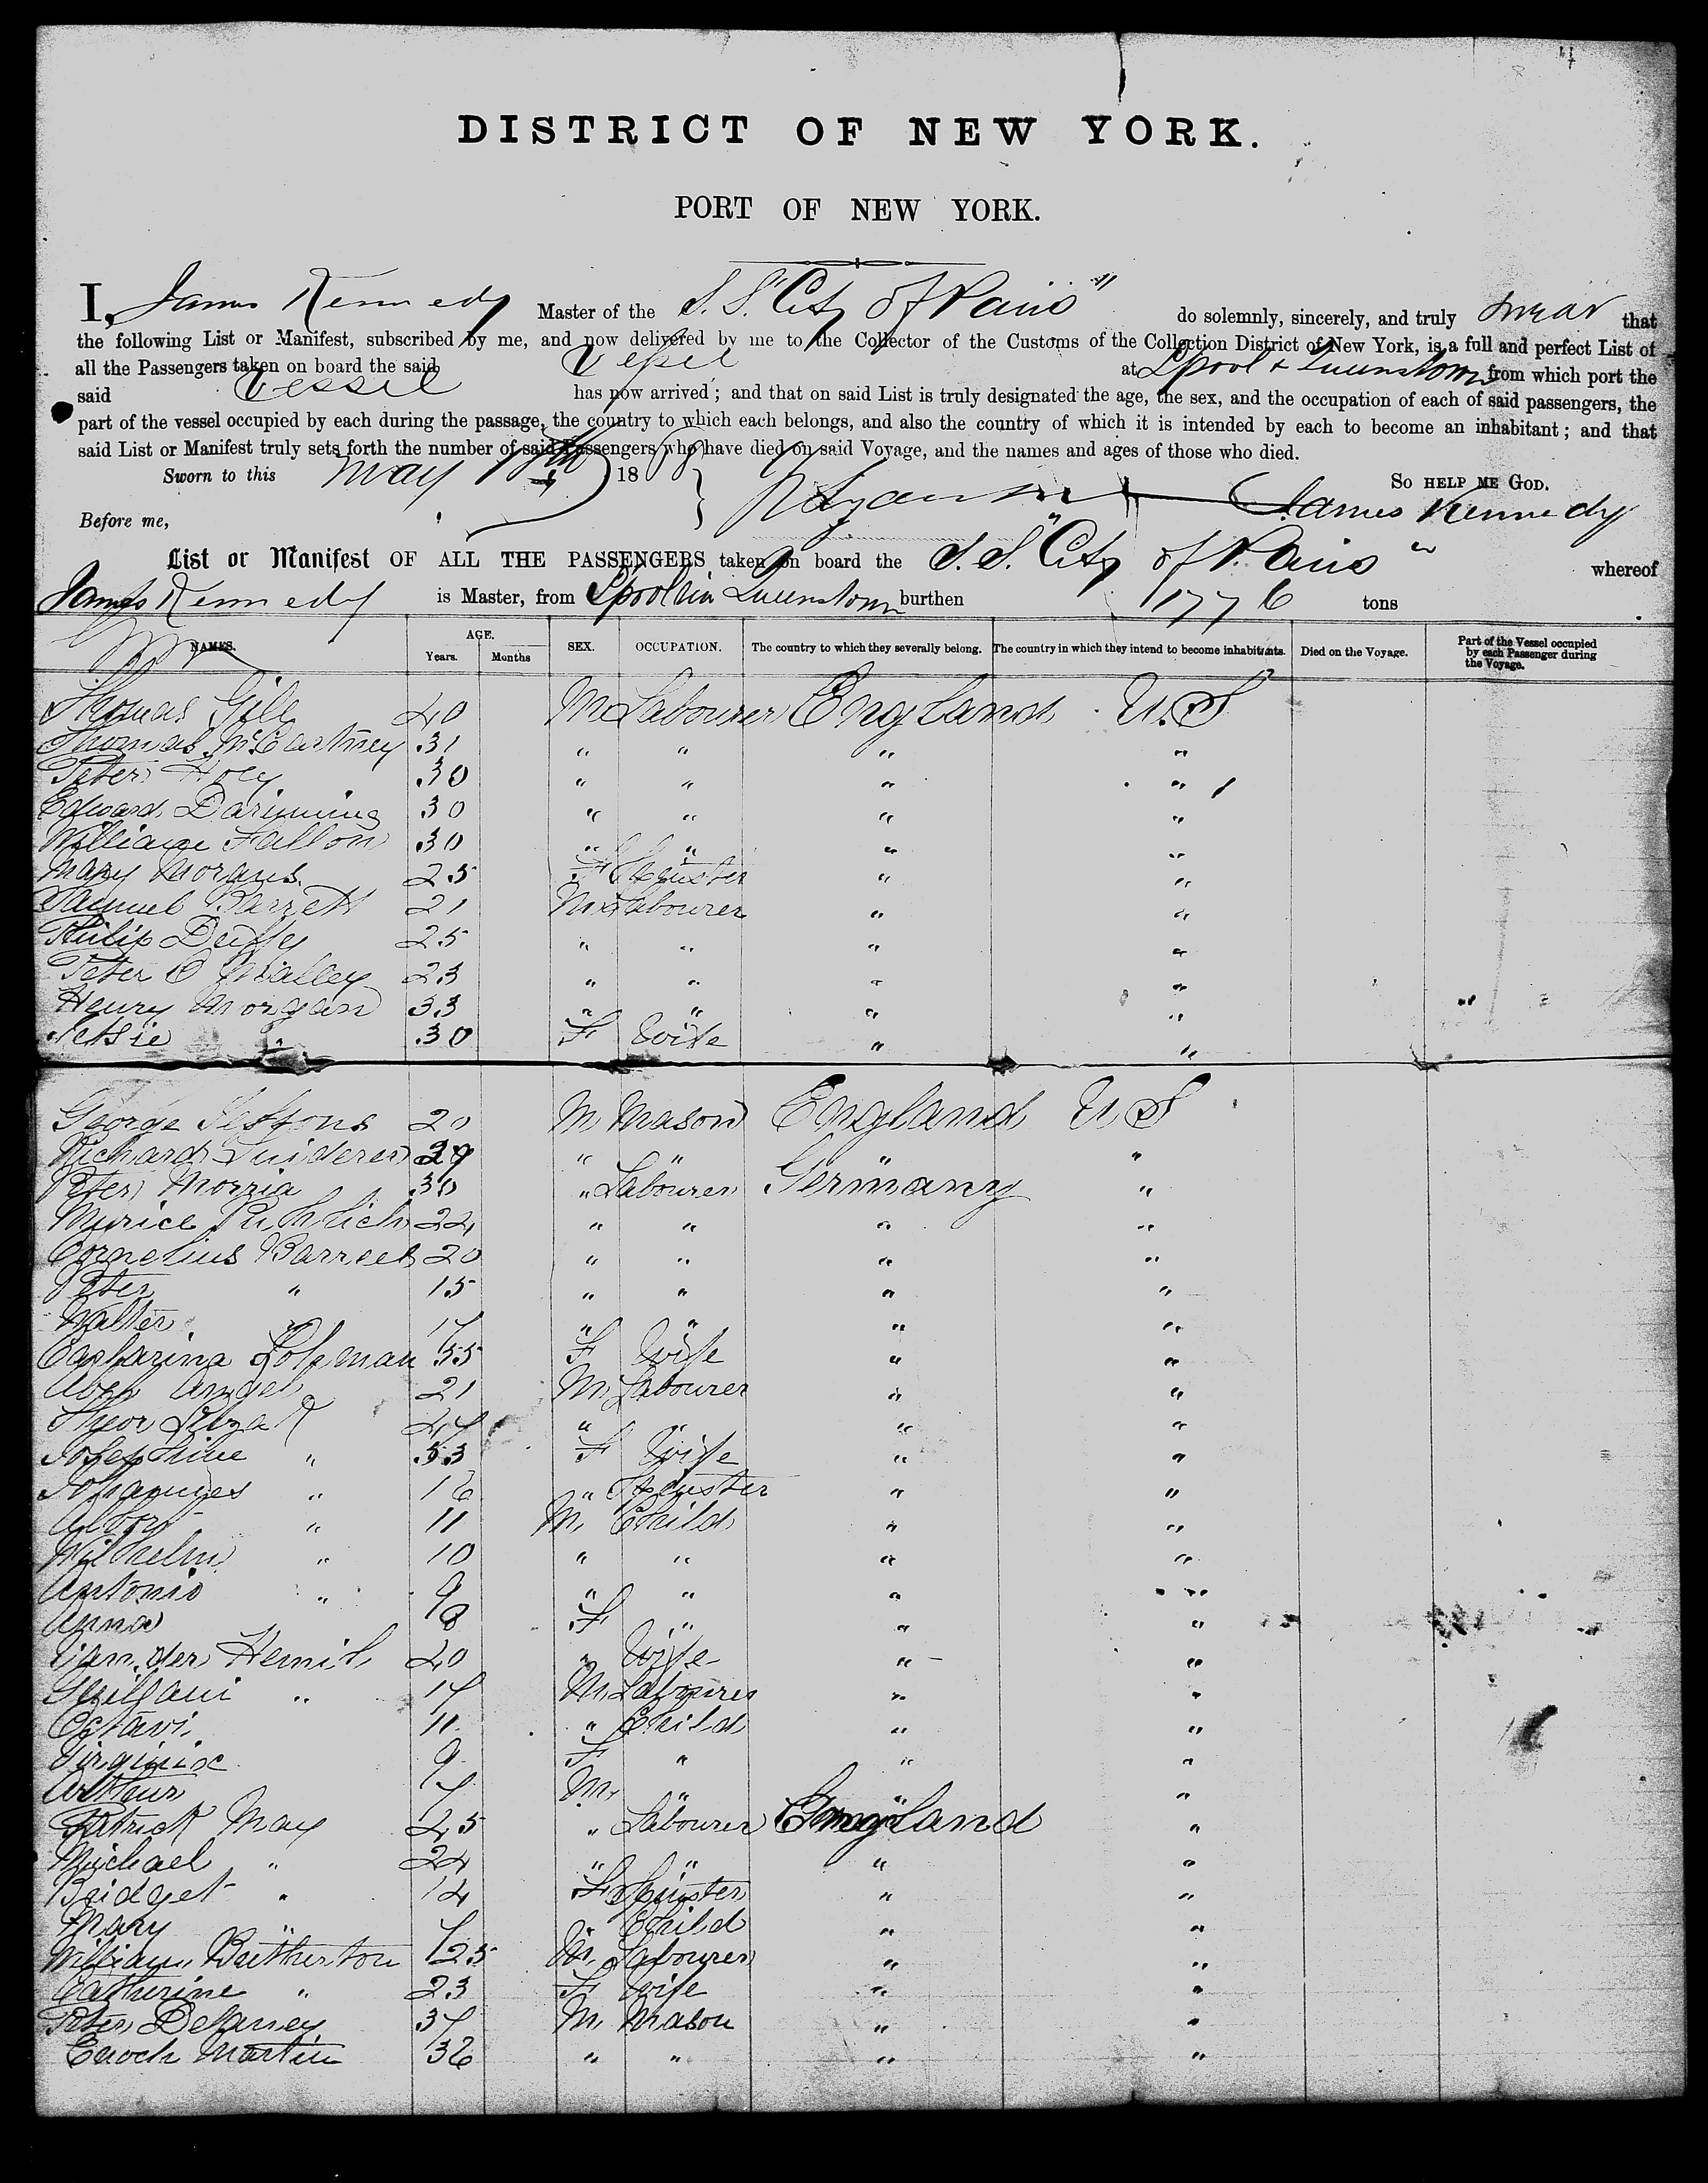 DISTRICT OF NEW YORK.
PORT OF NEW YORK.
I, James Kennedy Master of the S.S. "City of Paris" do solemnly, sincerely, and truly swear that
the following List or Manifest, subscribed by me, and now delivered by me to the Collector of the Customs of the Collection District of New York, is a full and perfect List of
all the Passengers taken on board the said Vessel at Lpool & Queenstown from which port the
said Vessel has now arrived; and that on said List is truly designated the age, the sex, and the occupation of each of said passengers, the
part of the vessel occupied by each during the passage, the country to which each belongs, and also the country of which it is intended by each to become an inhabitant; and that
said List or Manifest truly sets forth the number of said Passengers who have died on said Voyage, and the names and ages of those who died.
Sworn to this May 18 So HELP ME GOD.
Before me, James Kennedy
List or Manifest OF ALL THE PASSENGERS taken on board the S.S. "City of Paris" whereof
James Kennedy is Master, from Lpool via Queenstown burthen 1776 tons
NAMES. AGE. Years. Months SEX. OCCUPATION. The country to which they severally belong. The country in which they intend to become inhabitants. Died on the Voyage. Part of the Vessel occupied by each Passenger during the Voyage.
Thomas Gill 40 M Labourer England U.S
Thomas McCartney 31 " " " "
Peter Hoey 30 " " " "
Edward 30 " " " "
William Fallon 30 " " " "
Mary Morgans 25 F " "
Samuel Barrett 21 M Labourer " "
Philip Duffey 25 " " " "
Peter O Malley 23 " " " "
Henry Morgan 33 " " " "
Jessie " 30 F Wife " "
George Sessons 20 M Mason England U.S
Richard 29 " " " "
Peter Morria 30 " Labourer Germany "
22 " " " "
Cornelius 20 " " " "
Peter " 15 " " " "
Walter " 17 " " " "
55 F Wife " "
21 M Labourer " "
47 " " " "
Josephine " 53 F Wife " "
Johannes " 16 " " "
" 11 M Child " "
Wilhelm " 10 " " " "
Antonio " 9 " " " "
Anna 8 F " " "
Van der 40 " Wife " "
" 17 M Labourer " "
Octavi 11 " Child " "
Virginia 9 F " " "
Arthur 7 M " " "
Patrick May 45 " Labourer England "
Michael " 22 " " " "
Bridget " 14 F " "
Mary " 7 Child " "
William Butherton 25 M Labourer " "
Catherine " 23 F Wife " "
Peter Delaney 37 M Mason " "
Enoch Martin 36 " " " "